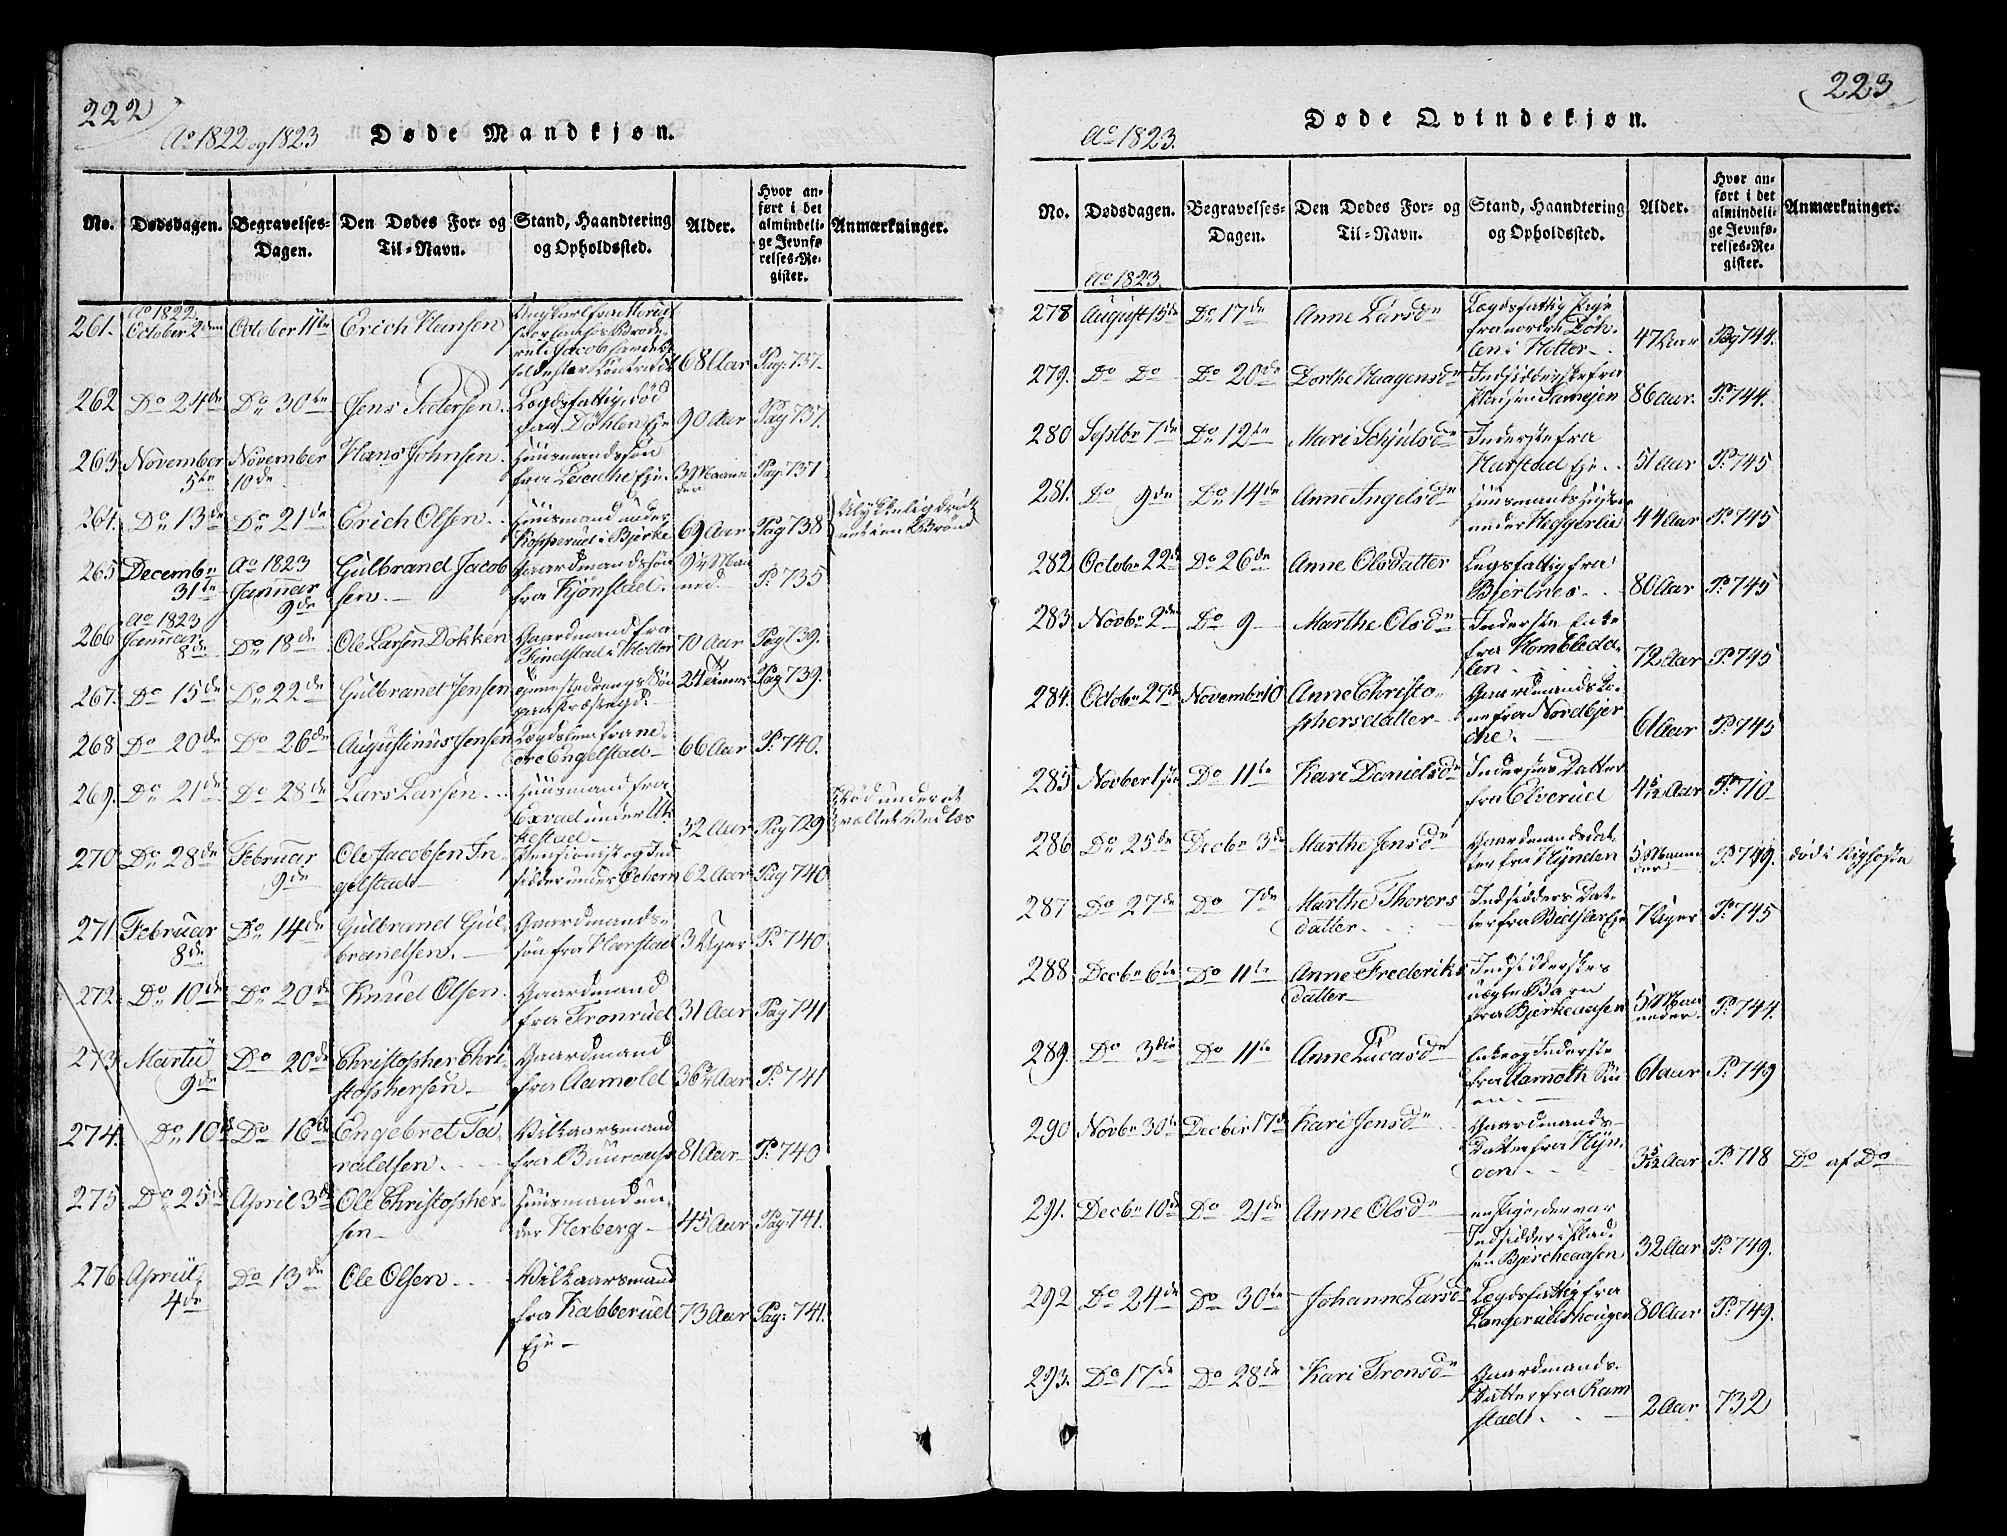 222
Ao 1822 og 1823
Døde Mandkjøn.
No. Dødsdagen. Begravelses-Dagen. Den Dødes For- og Til-Navn. Stand, Haandtering og Opholdssted. Alder. Hvor anført i det almindelige Jevnførelses-Register. Anmærkninger.
Ao 1822.
261. October 2den October 11te Erich Hansen 68 Aar Pag: 737.
262 Do 24de Do 30te Jens Pedersen Lægdsfattig, død fra Døhlen Eje 90 Aar Pag 737.
263 November 5te November 10de Hans Johnsen Huusmandssøn fra Eje 3 Maaneder Pag: 737
264. Do 13de Do 21de Erich Olsen Huusmand under Kopperud i Bjerke 69 Aar Pag 738 Brønd
265 Decembr 31te Ao 1823 Januar 9de Gulbrand Jacobsen Gaardmandssøn fra Kjønstad P: 735
Ao 1823
266 Januar 8de Do 18de Ole Larsen Dokken Gaardmand fra Findstad i Holter 70 Aar Pag 739.
267. Do 15de Do 22de Gulbrand Jensen 24 Timer Pag 739.
268 Do 20de Do 26de Augustinus Jensen Lægdslem fra nedre Engelstad 66 Aar P: 740.
269. Do 21de Do 28de Lars Larsen Huusmand fra under 32 Aar Pag 729 Død under et væltet Vedlæs
270 Do 28de Februar 9de Ole Jacobsen Ingelstad Pensionist og Indsidder under 62 Aar Pag 740
271 Februar 8de Do 14de Gulbrand Gulbrandsen. Gaardmandssøn fra Harstad 3 Uger P: 740
272. Do 10de Do 20de Knud Olsen Gaardmand fra Tronrud 31 Aar Pag 741
273 Martii 9de Do 20de Christopher Christophersen Gaardmand fra Aamold 36 Aar P: 741
274. Do 10de Do 16de Engebret Taraldsen Vilkaarsmand fra Buuraas 81 Aar P: 740
275 Do 25de April 3de Ole Christophersen Huusmand under Herberg 45 Aar Pag: 741.
276 April 4de Do 13de Ole Olsen Vilkaarsmand fra Kabberud Eje 73 Aar Pag: 741.
223
Ao 1823.
Døde Qvindekjøn.
No. Dødsdagen. Begravelses-Dagen. Den Dødes For- og Til-Navn. Stand, Haandtering og Opholdssted. Alder. Hvor anført i det almindelige Jevnførelses-Register. Anmærkninger.
Ao 1823.
278 August 15de Do 17de Anne Larsdn Lægdsfattig Pige fra nordre Døhlen i Holter 47 Aar Pag 744.
279. Do Do Do 20de Dorthe Haagensdn Indsidderske fra 86 Aar P: 744.
280 Septbr 7de Do 12te Mari Schjulsdn Inderste fra Harstad Eje 51 Aar P: 745
281. Do 9de Do 14de Anne Ingelsdn under Heggerlie 44 Aar P: 745
282 Octobr 22de Do 26de Anne Olsdatter Legsfattig fra Bjertnes 80 Aar P: 745
283 Novbr 2den Do 9 Marthe Olsdn Inderste Enke fra Hombledalen 72 Aar P: 745
284. Octobr 27de Novembr 10 Anne Christophersdatter Gaardmandskone fra Nordbjerche. 61 Aar P: 745
285 Novber 1ste Do 11te Kari Danielsdn Inderstes Datter fra Elverud 4 5/12 Aar P: 710
286 Do 25de Decbr 3de Marthe Jensdn Gaardmandsdatter fra Hynden 5 Maaneder P: 749. død i Kighoste
287 Do 27de Do 7de Marthe Thorersdatter Indsidders Datter fra Eje 7 Uger P: 745
288 Decbr 6te Do 11te Anne Frederiksdatter Indsidderskes uægte Barn fra Bjerkeaasen 5 Maaneder P: 744.
289. Do 3die Do 11te Anne Lucasdn Enke og Inderste fra 61 Aar P: 749
290 Novbr 30te Decbr 17de Kari Jensdn Gaardmands-Datter fra Hynden 3 5/12 Aar P: 718 Do af Do
291. Decbr 10de Do 21de Anne Olsdn en Pige, der var Indsidder i Pladsen Bjercheaasen 32 Aar P: 749.
292 Do 24de Do 30te Johanne Larsdn Lægdsfattig fra Langerudshougen 80 Aar P: 749.
293. Do 17de Do 28de Kari Tronsdn Gaardmands-Datter fra Ramstad 2 Aar 732